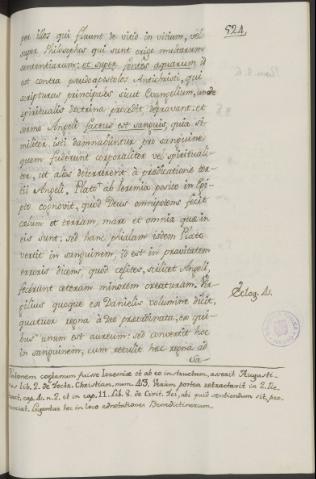 524.
per illos qui fluunt de vitio in vitium, vel
super Philosophos qui sunt origo multarum
sententiarum; et super fontes aquarum id
est contra pseudoapostolos Antichristi, qui
scripturas principales sicut Evangelium, unde
spiritualis doctrina procedit, depravant: et
Angeli factus est sanguis, quia si-
militer isti damnabuntur pro sanguine
quem fuderunt corporaliter vel spirituali-
ter, ut alios deterrerent à praedicatione ter-
tii Angeli. Plato ab Ieremia posito in Egi-
pto cognovit, quod Deus omnipotens fecit
caelum et terram, mare et omnia quae in
eis sunt: sed hanc phialam isdem Plato
vertit in sanguinem, id est in pravitatem
erroris dicens, quod caelites, scilicet Angeli,
fecerunt caeteram minorem creaturam. Vir-
gilius quoque ex Danielis volumine didicit,
quatuor regna à Deo praeordinata, ex qui-
bus unum est aureum: sed convertit hoc
in sanguinem, cum retulit hoc regna ad
Platonem coetaneum fuisse Ieremiae et ab eo instructum, asserit Augusti-
nus Lib. 2. de Doctr. Christian. num. 43. Verum postea retractavit in 2. Re-
tract. cap. 4. n. 2. et in cap. 11. Lib. 8. de Civit. Dei, ubi quid sentiendum sit, pro-
nuntiat. Legantur hoc in loco adnotationes Benedictinorum.